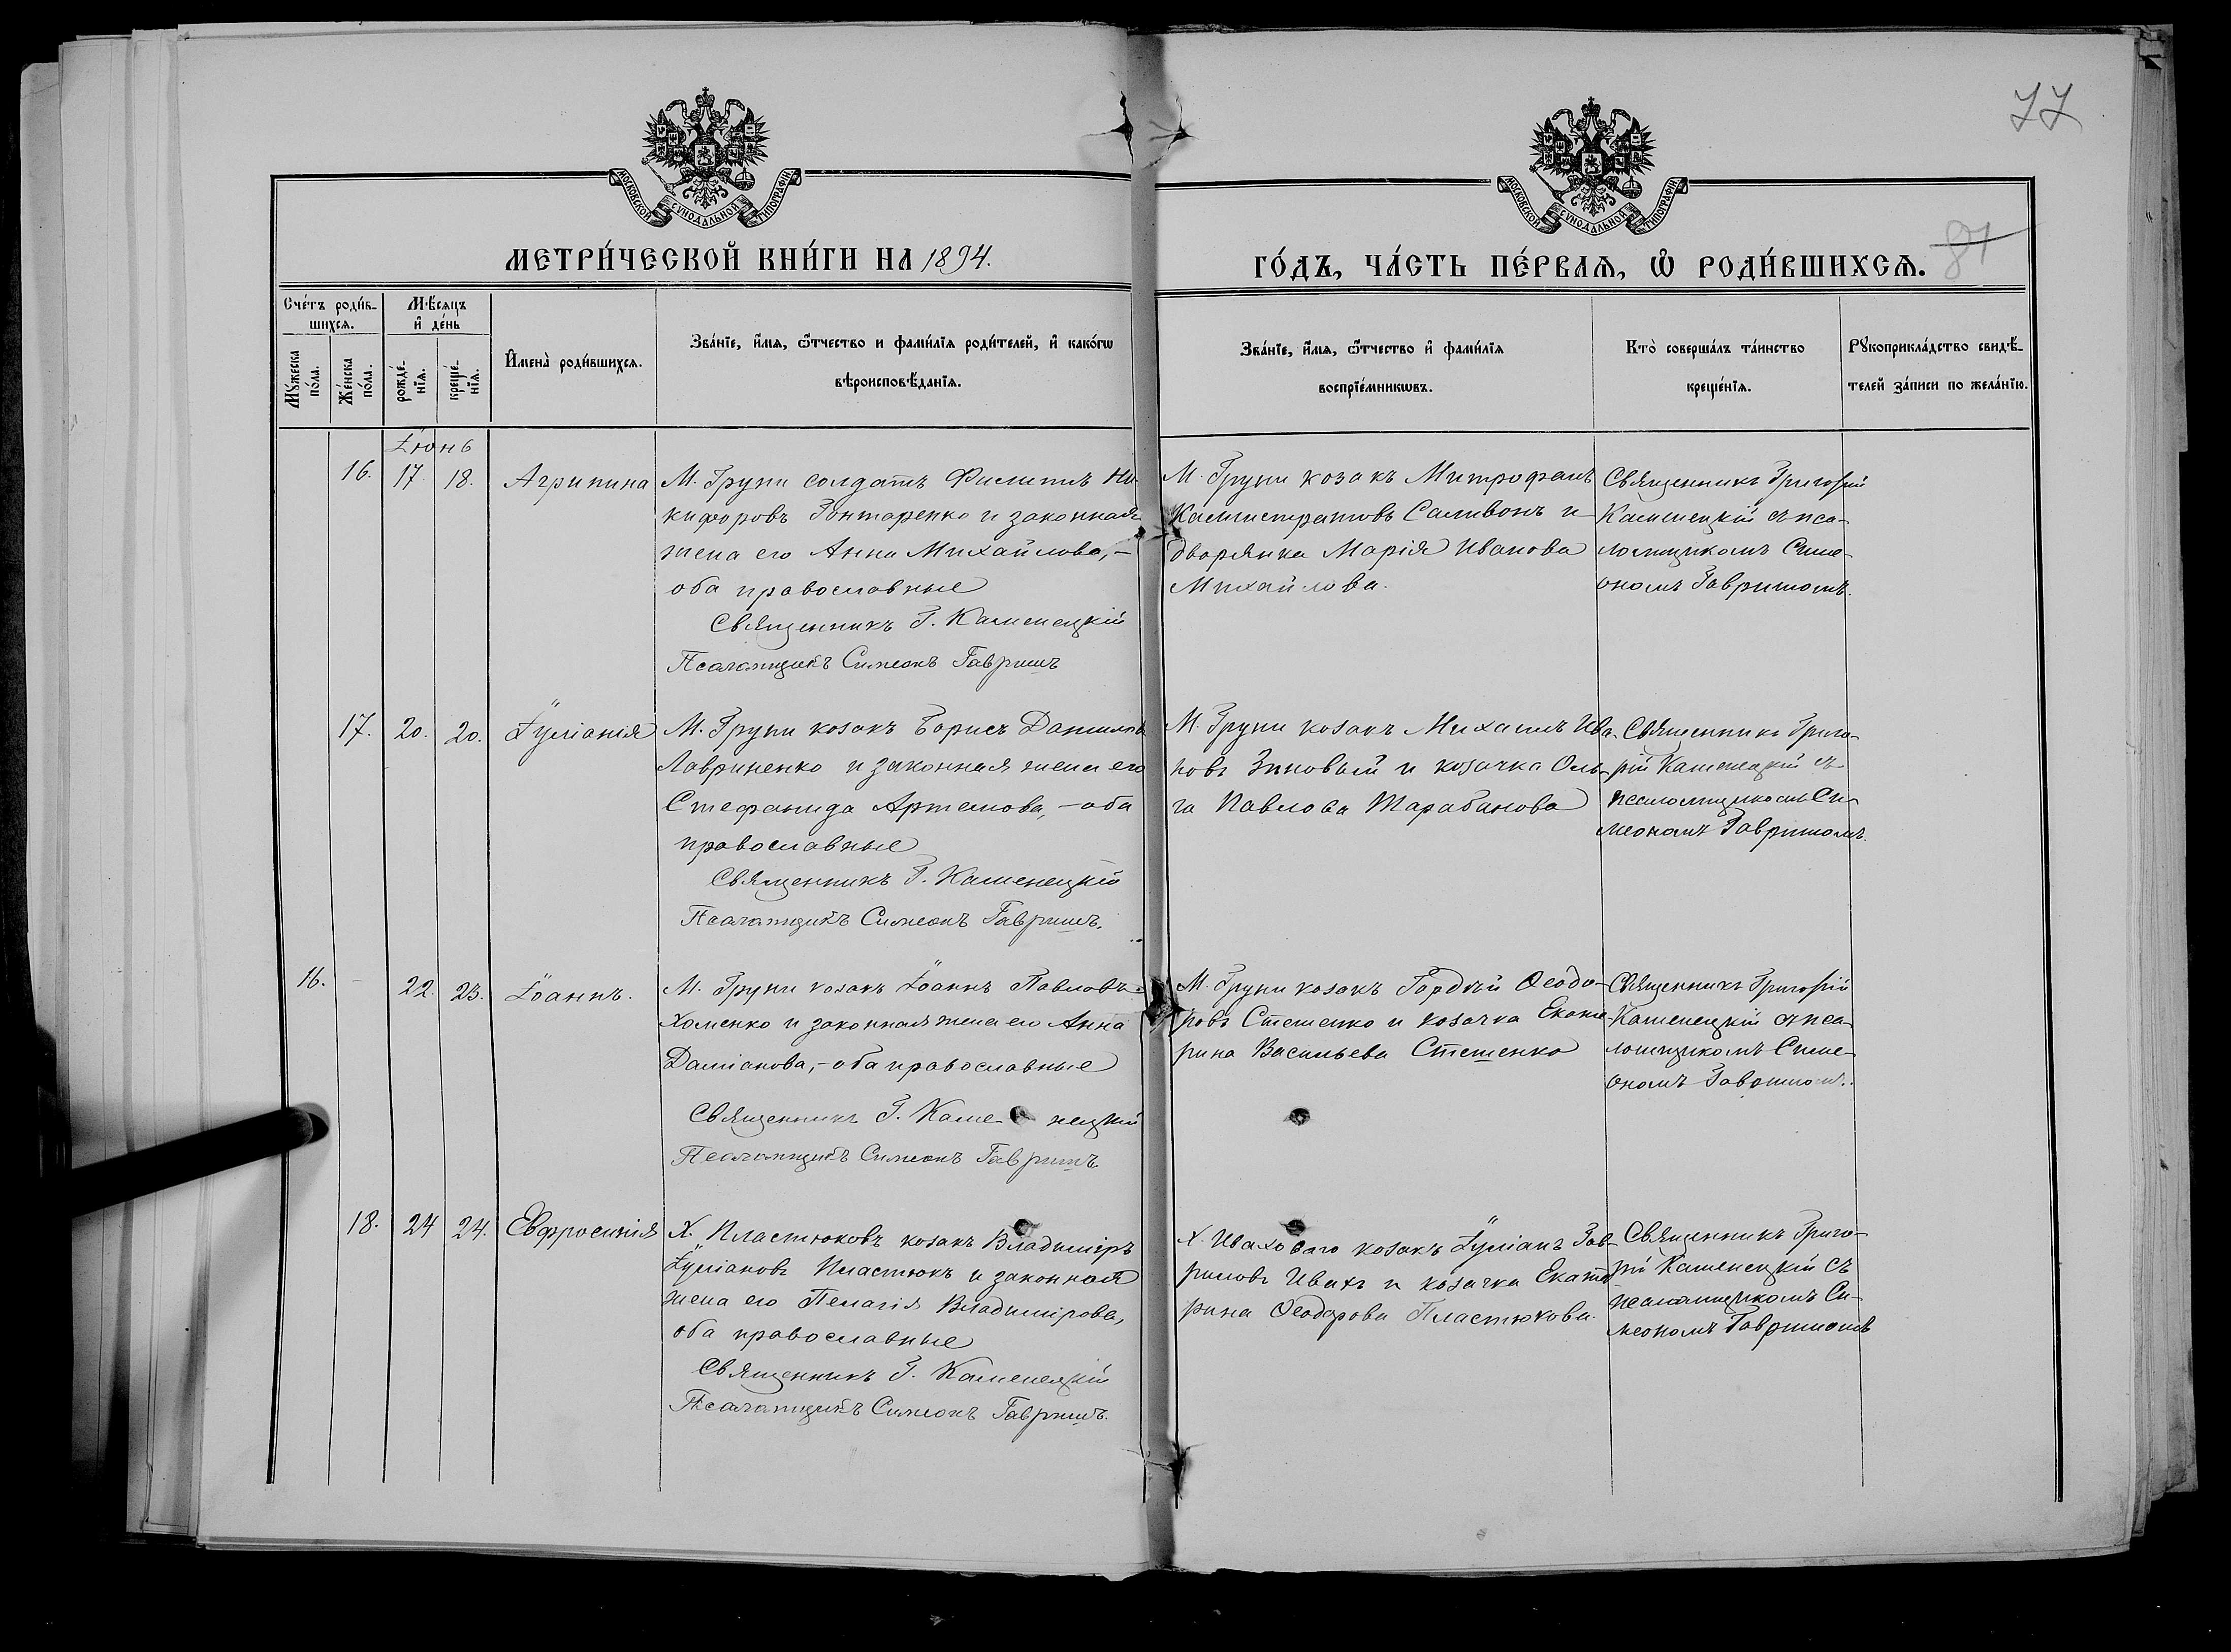 77
МОСКОВСКОЙ СѴНОДАЛЬНОЙ ТИПОГРАФІИ
МОСКОВСКОЙ СѴНОДАЛЬНОЙ ТИПОГРАФІИ
МЕТРИ́ЧЕСКОЙ КНИ́ГИ НА 1894.
ГО́ДЪ, ЧА́СТЬ ПЕ́РВАѦ, Ѡ҆ РОДИ́ВШИХСѦ.
81
Сче́тъ роди́в-
шихсѧ.
Мꙋ́жеска по́ла.
Же́нска по́ла.
Мѣ́сѧцъ
и҆ де́нь
рожде́-нїѧ.
креще́-нїѧ.
И҆мена̀ роди́вшихсѧ.
Зва́нїе, и҆́мѧ, ѻ҆́тчество и фами́лїѧ роди́телей, и҆ како́гѡ
вѣроисповѣ́данїѧ.
Зва́нїе, и҆́мѧ, ѻ҆́тчество и҆ фами́лїѧ
воспрїе́мникѡвъ.
Кто̀ соверша́лъ та́инство
креще́нїѧ.
Рꙋкоприкла́дство свидѣ́-
телей за́писи по жела́нїю.
Іюнь
16. 17. 18. Агрипина
М. Груни солдатъ Филиппъ Ни-
кифоровъ Гонтаренко и законная
жена его Анна Михайлова,-
оба православные
Священникъ Г. Каменецкій
Псаломщикъ Симеонъ Гавришъ
М. Груни козакъ Митрофанъ
Каллистратовъ Саливонъ и
дворянка Марія Иванова
Михайлова.
Священникъ Григорій
Каменецкій съ пса-
ломщикомъ Симе-
ономъ Гавришомъ.
17. 20. 20. Іуліанія
М. Груни козакъ Борисъ Даниловъ
Лавриненко и законная жена его
Стефанида Артемова,-оба
православные
Священникъ Г. Каменецкій
Псаломщикъ Симеонъ Гавришъ.
М. Груни козакъ Михаилъ Ива-
новъ Зиновый и козачка Оль-
га Павлова Тарабанова
Священникъ Григо-
рій Каменецкій съ
псаломщикомъ Си-
меономъ Гавришомъ.
16. - 22. 23. Іоаннъ.
М. Груни козакъ Іоаннъ Павловъ
Хоменко и законная жена его Анна
Даміанова,-оба православные
Священникъ Г. Каме-нецкій
Псаломщикъ Симеонъ Гавришъ.
М. Груни козакъ Гордѣй Ѳеодо-
ровъ Стешенко и козачка Екате-
рина Васильева Стешенко
Священникъ Григорій
Каменецкій съ пса-
ломщикомъ Симе-
ономъ Гавришомъ.
18. 24 24. Евфросинія
Х. Пластюковъ козакъ Владиміръ
Іуліановъ Пластюкъ и законная
жена его Пелагія Владимірова,
оба православные
Священникъ Г. Каменецкій
Псаломщикъ Симеонъ Гавришъ.
Х. Ивахового козакъ Іуліанъ Гав-
риловъ Ивахъ и козачка Екате-
рина Ѳеодорова Пластюкова.
Священникъ Григо-
рій Каменецкій съ
псаломщикомъ Си-
меономъ Гавришомъ